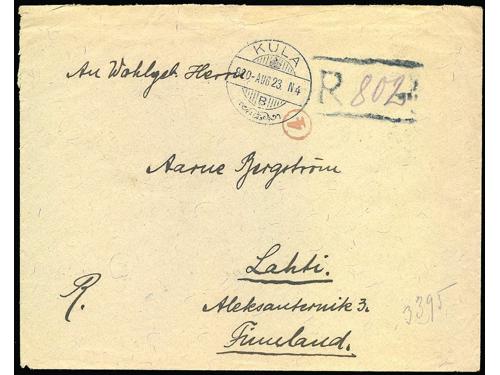 An Wohlgeb. Herrn
KULA
920-AUG 23. N4
B
R 802
4
Aarne Bergström
Lahti.
R.
Aleksanternik 3.
Finnland.
3395